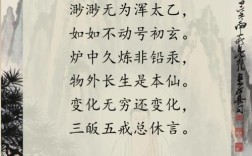 渺渺无为浑太乙，
如如不动号初玄。
炉中久炼非铅汞，
物外长生是本仙。
变化无穷还变化，
三皈五戒总休言。